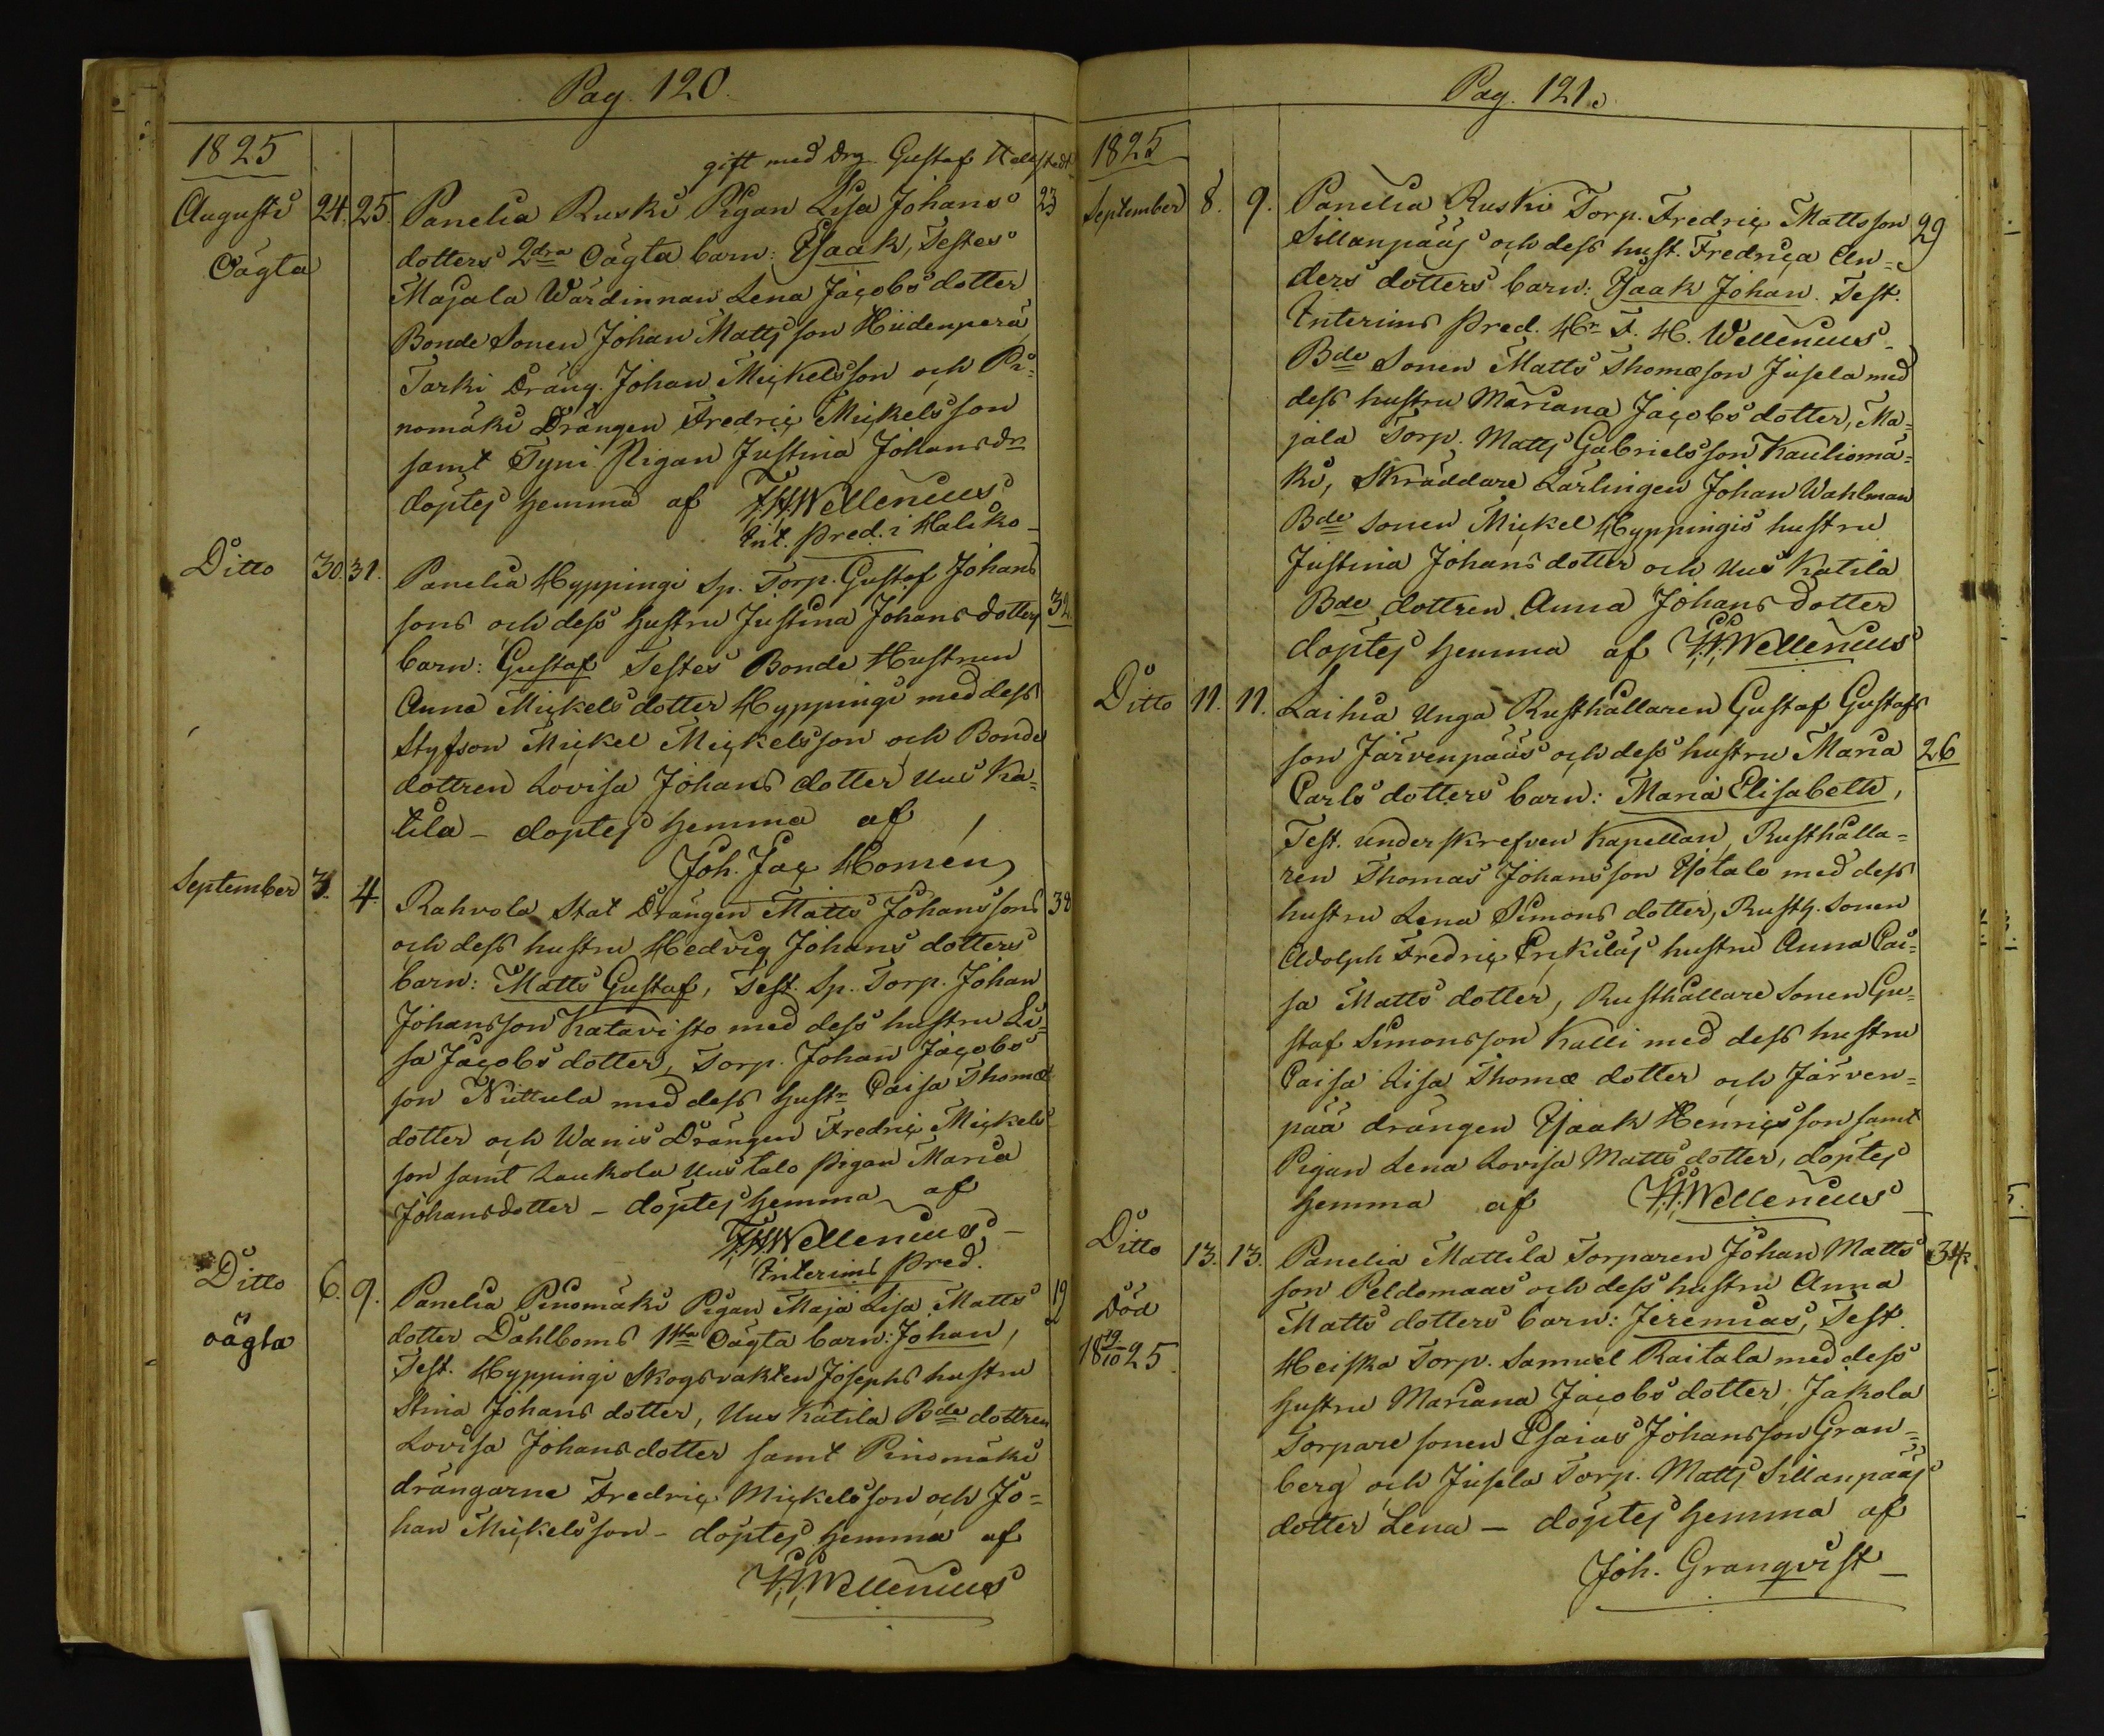 Pag. 120.
1825
gift med Drg. Gustaf Hellstedt
Augusti 24. 25. Panelia Ruski Pigan Lisa Johans 23
Oägta dotters 2dra Oägta barn: Isaak, Testes
Majala Wärdinnan Lena Jacobs dotter
Bonde Sonen Johan Matts son Hiidenperä
Tarki Dräng. Johan Mickelsson och Pi-
nomäki Drängen Fredric Mickelsson
samt Tyni Pigan Justina Johansdr
döptes hemma af F.H.Wellenius
Int. Pred. i Haliko
Ditto 30. 31. Panelia Hyppingi Sp. Torp. Gustaf Johans
sons och dess hustru Justina Johans dotters 32
barn: Gustaf Testes Bonde Hustrun
Anna Mickels dotter Hyppingi med dess
Styfson Mickel Mickelsson och Bonde
dottren Lovisa Johans dotter Uus Ka-
tila - döptes hemma af
Joh. Jac Homén
September 3. 4. Rahvola Stat Drängen Matts Johanssons 38
och dess hustru Hedvig Johans dotters
barn: Matts Gustaf, Test. Sp. Torp. Johan
Johansson Katavisto med dess hustru Li-
sa Jacobs dotter, Torp. Johan Jacobs
son Niittula med dess hustr Caisa Thomæ
dotter och Wanis Drängen Fredric Mickels
son samt Laukola Uustalo Pigan Maria
Johansdotter - döptes hemma af
F.H.Wellenius
Interims Pred.
Ditto 6. 9. Panelia Pinomäki Pigan Maja Lisa Matts 19
oägta dotter Dahlboms 1sta Oägta barn: Johan,
Test. Hyppingi Skogsvakten Josephs hustru
Stina Johans dotter, Uus Katila Bde dottren
Lovisa Johansdotter samt Pinomäki
drängarne Fredric Mickelsson och Jo-
han Mickelsson - döptes hemma af
F.H.Wellenius
Pag. 121.
1825
September 8. 9. Panelia Ruski Torp. Fredric Mattsson 29
Sillanpääs och dess hust. Fredrica An-
ders dotters barn: Isaak Johan. Test.
Interims Pred. Hr F. H. Wellenius
Bde Sonen Matts Thomæson Jusela med
dess hustru Mariana Jacobs dotter, Ma-
jala Torp. Matts Gabrielsson Kauliomä-
ki, Skräddare Lärlingen Johan Wahlman
Bde Sonen Mickel Hyppingis hustru
Justina Johans dotter och Uus Katila
Bde dottren Anna Johans dotter
döptes hemma af F.H.Wellenius
Ditto 11. 11. Laihia Unga Rusthållaren Gustaf Gustafs
son Järvenpääs och dess hustru Maria 26
Carls dotters barn: Maria Elisabeth,
Test. underskrefven Kapellan, Rusthålla-
ren Thomas Johansson Isotalo med dess
hustru Lena Simons dotter, Rusth. Sonen
Adolph Fredric Erckiläs hustru Anna Cai-
sa Matts dotter, Rusthållare Sonen Gu-
staf Simonsson Kulli med dess hustru
Caisa Lisa Thomæ dotter och Järven-
pää drängen Isaak Henricsson samt
Pigan Lena Lovisa Matts dotter, döptes
hemma af F.H.Wellenius
Ditto 13. 13. Panelia Mattila Torparen Johan Matts 34
son Peldomaas och dess hustru Anna
Död Matts dotters barn: Jeremias, Test.
18 19/10 25 Heiska Torp. Samuel Raitala med dess
hustru Mariana Jacobs dotter, Jakola
Torpare sonen Esaias Johansson Gran-
berg och Jusela Torp. Matts Sillanpääs
dotter Lena - döptes hemma af
Joh. Granqvist